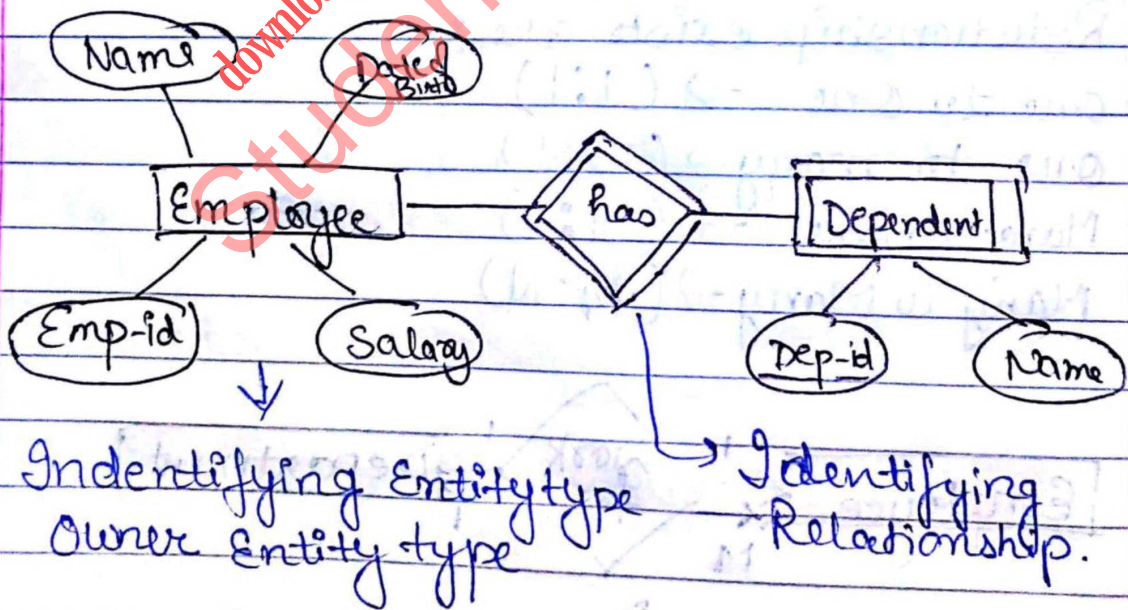 downlo
Studen
Name
Date of
Birth
Employee
has
Dependent
Emp-id
Salary
Dep-id
Name
Indentifying Entity type
Owner Entity type
Indentifying
Relationship.